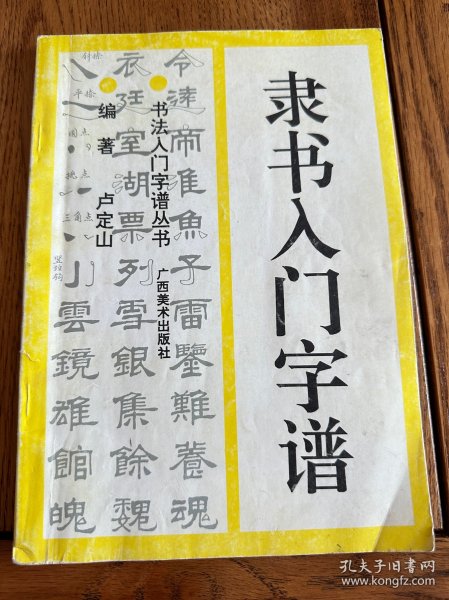 隶书入门字谱
书法入门字谱丛书
编著 卢定山
广西美术出版社
令 衣 八
斜捺
平捺
圆点
挑点
三角点
竖弯钩
令逵帝淮魚子雷鑒難養魂
衣廷室湖票列雪銀集餘魏
雲鏡雄館魄
孔夫子旧书网
www.kongfz.com